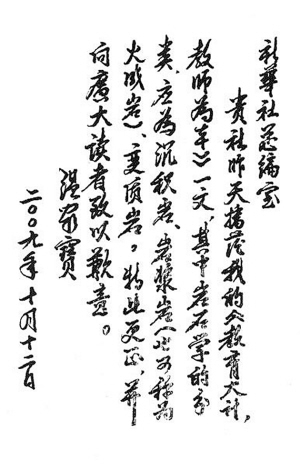 新华社总编室
贵社昨天播发我的《教育大计，
教师为本》一文，其中岩石学的分
类，应为沉积岩、岩浆岩（也可称为
火成岩）、变质岩。特此更正，并
向广大读者致以歉意。
温家寶
二〇〇九年十月十二日